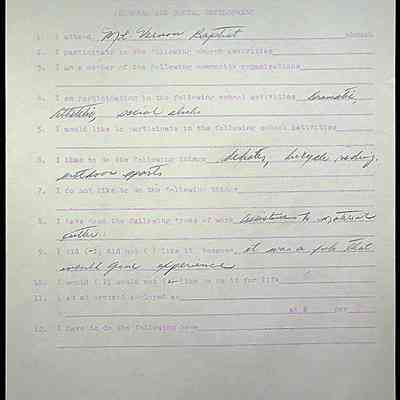 PERSONAL AND SOCIAL DEVELOPMENT
1. I attend Mt. Vernon Baptist church
2. I participate in the following church activities
3. I am a member of the following community organizations
4. I am participating in the following school activities Dramatic,
Athletic, social clubs
5. I would like to participate in the following school activities
6. I like to do the following things debates, bicycle riding,
outdoor sports
7. I do not like to do the following things
8. I have done the following types of work Assistance to material
cutter.
9. I did ( ) did not ( ) like it, because it was a job that
would give experience
10. I would ( ) would not ( ) like to do it for life
11. I am at present employed as
at $ per
12. I have to do the following